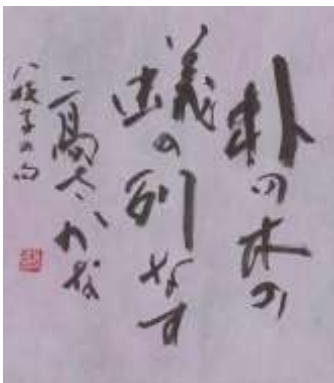 朴の木の
蟻の列なす
高さかな
八枝子の句